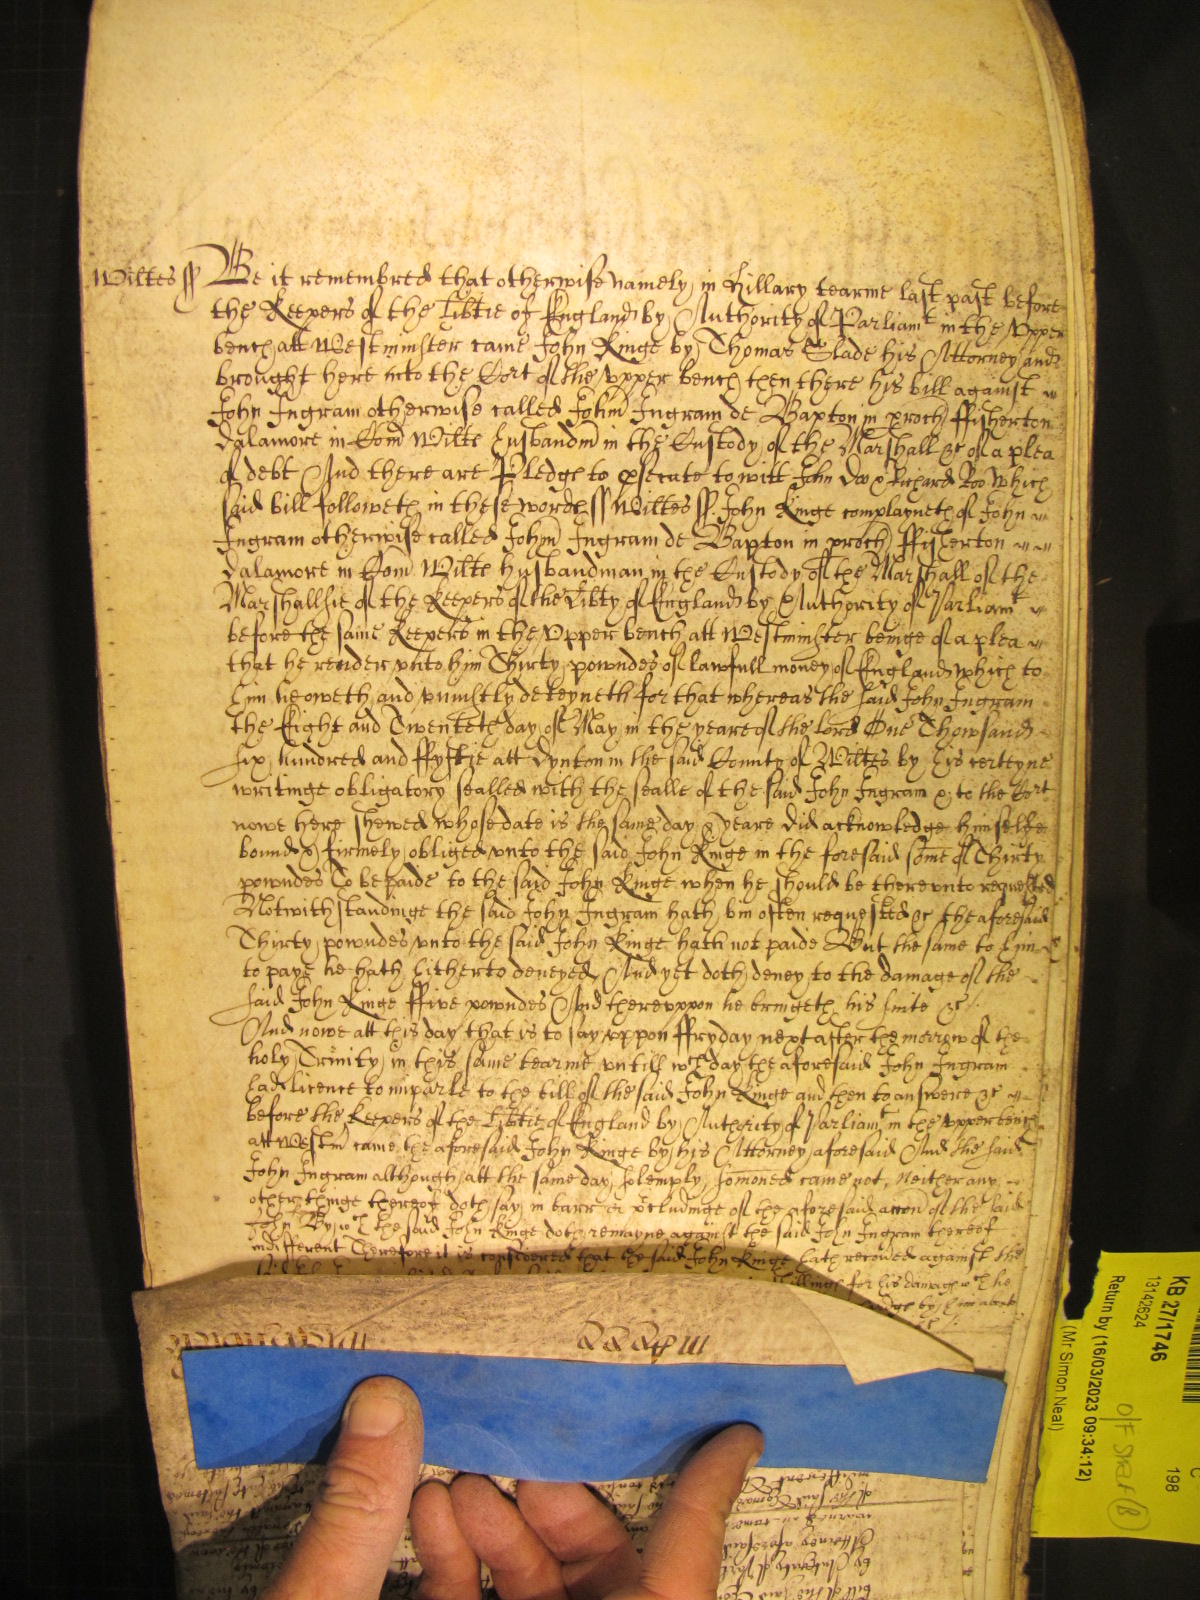 Wiltes ss Be it remembred that otherwise namely in Hillary tearme last past before
the Keepers of the Libtie of England by Authority of Parliamt in the Upper
bench att Westminster came John Kinge by Thomas Slade his Attorney and
brought here into the Cort of the upper bench then there his bill against
John Ingram otherwise called Johm Ingram de Bapton in proch ffisherton
Dalamore in Com Wilte husbandm in the Custody of the Marshall &c of a plea
of debt And there are Pledge to psecute to witt John Doo & Richard Roo Which
said bill followeth in these words ss Wiltes ss John Kinge complayneth of John
Ingram otherwise called Johm Ingram de Bapton in proch ffisherton
Dalamore in Com Wilte husbandman in the Custody of the Marshall of the
Marshallsie of the Keepers of the Libty of England by Authority of Parliamt
before the same Keepers in the Upper bench att Westminster beinge of a plea
that he render unto him Thirty powndes of lawfull money of England which to
him he oweth and uniustly deteyneth for that whereas the said John Ingram
the Eight and Twentete day of May in the yeare of the lord One Thowsand
six hundred and ffyftie att Dynton in the said County of Wiltes by his certeyne
writinge obligatory sealled with the sealle of the said John Ingram & to the Cort
nowe here shewed whose date is the same day & yeare did acknowledge himselfe
bound & firmely obliged unto the said John Kinge in the foresaid some of Thirty
powndes To be paide to the said John Kinge when he should be thereunto requested
Notwithstandinge the said John Ingram hath bin often requested &c the aforesaid
Thirty powndes unto the said John Kinge hath not paide But the same to him
to paye he hath hitherto deneyed And yet doth deney to the damage of the
said John Kinge ffive powndes And thereuppon he bringeth his suite &c
And nowe att this day that is to say uppon ffryday next after the morrow of the
holy Trinity in this same tearme untill wch day the aforesaid John Ingram
had licence to imparle to the bill of the said John Kinge and then to answere &c
before the Keepers of the Libtie of England by Authority of Parliamt in the upper bench
att Westm came the aforesaid John Kinge by his Attorney aforesaid And the said
John Ingram although att the same day solemply somoned came not, Neither any
other thinge thereof doth say in barr or pcludinge of the aforesaid accon of the said
John By wch the said John Kinge doth remayne against the said John Ingram thereof
indifferent Therefore it is considered that the said John Kinge hath recoved against the
shillings for his damage wch he
by him about
KB 27/1746
13142624
Return by (16/03/2023 09:34:12)
(Mr Simon Neal)
198
C
O/F Shelf (B)